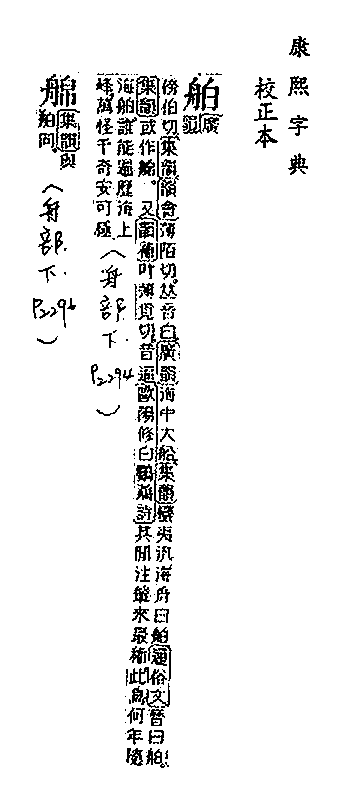 康熙字典
校正本
舶 廣韻
傍伯切集韻韻會薄陌切𠀤音白廣韻海中大船集韻蠻夷汎海舟曰舶通俗文晉曰舶
集韻或作。又韻補叶薄切音逼歐陽修白鸚鵡詩其間注輦來最稀此鳥何年隨
海舶誰能遍歷海上
峰萬怪千奇安可極
（舟部.下.P2294）
集韻與
舶同。
（舟部.下.P2296）